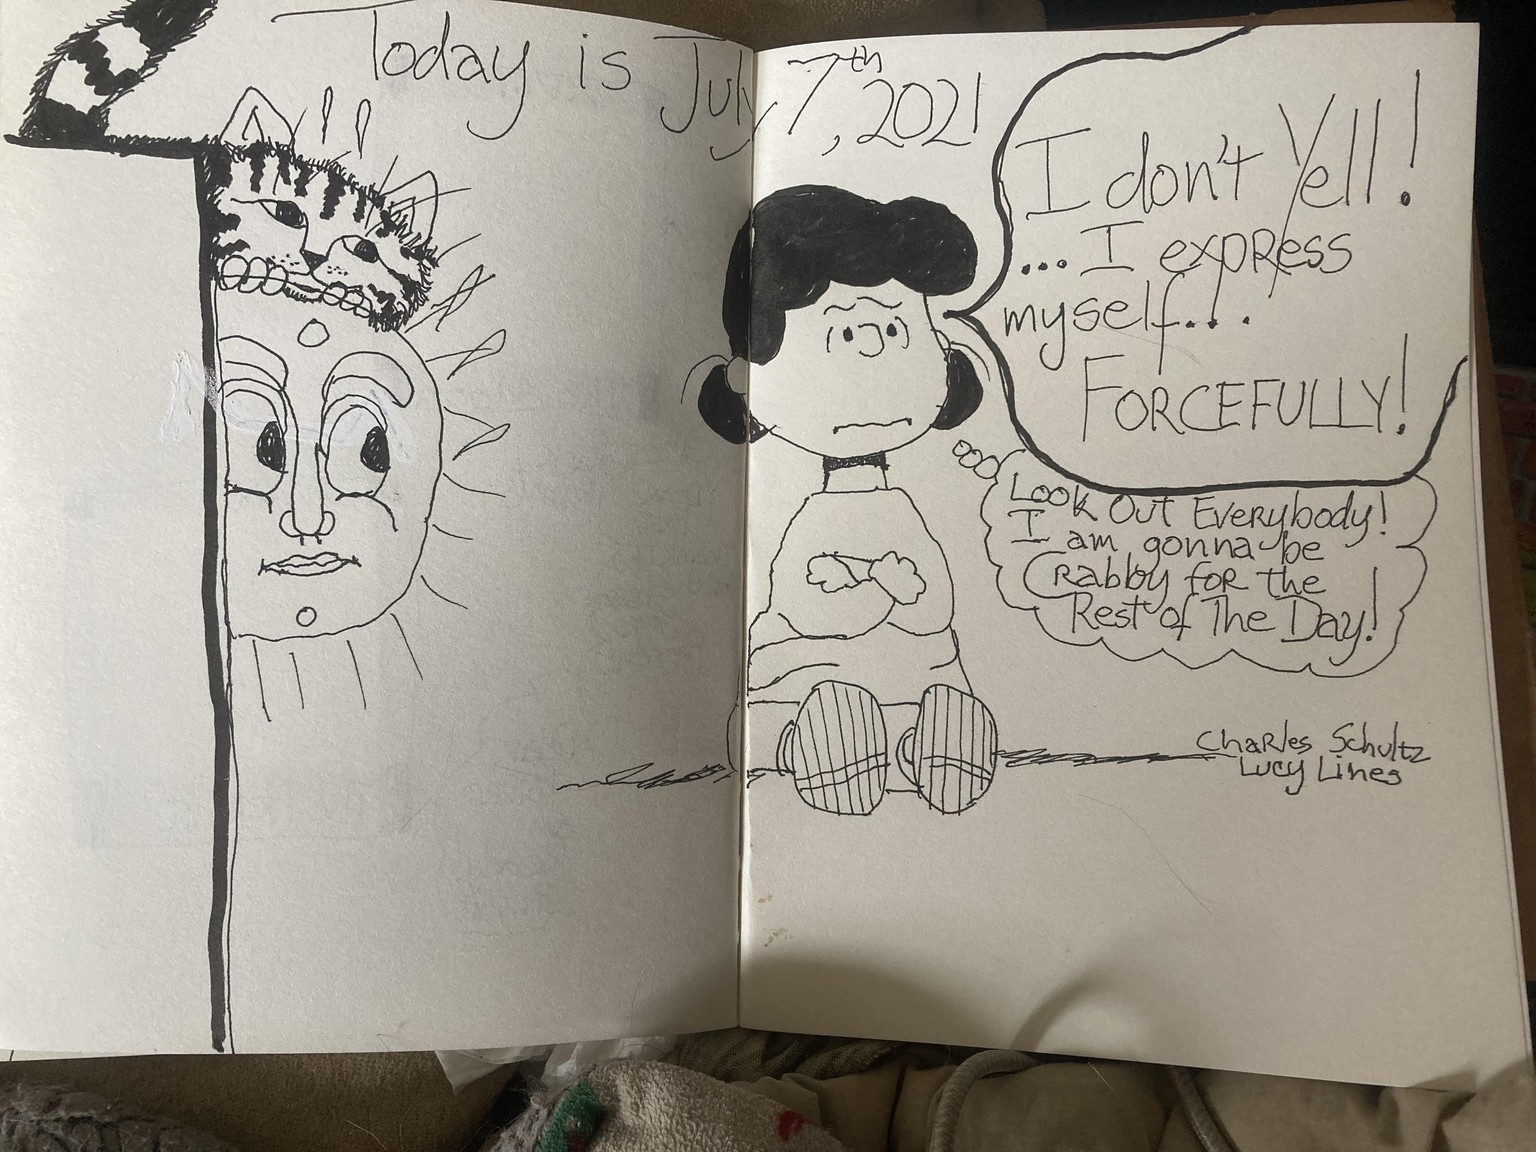 Today is July 7th, 2021
I don't Yell!
...I express
myself...
FORCEFULLY!
Look Out Everybody!
I am gonna be
Crabby for the
Rest of The Day!
Charles Schultz
Lucy Lines